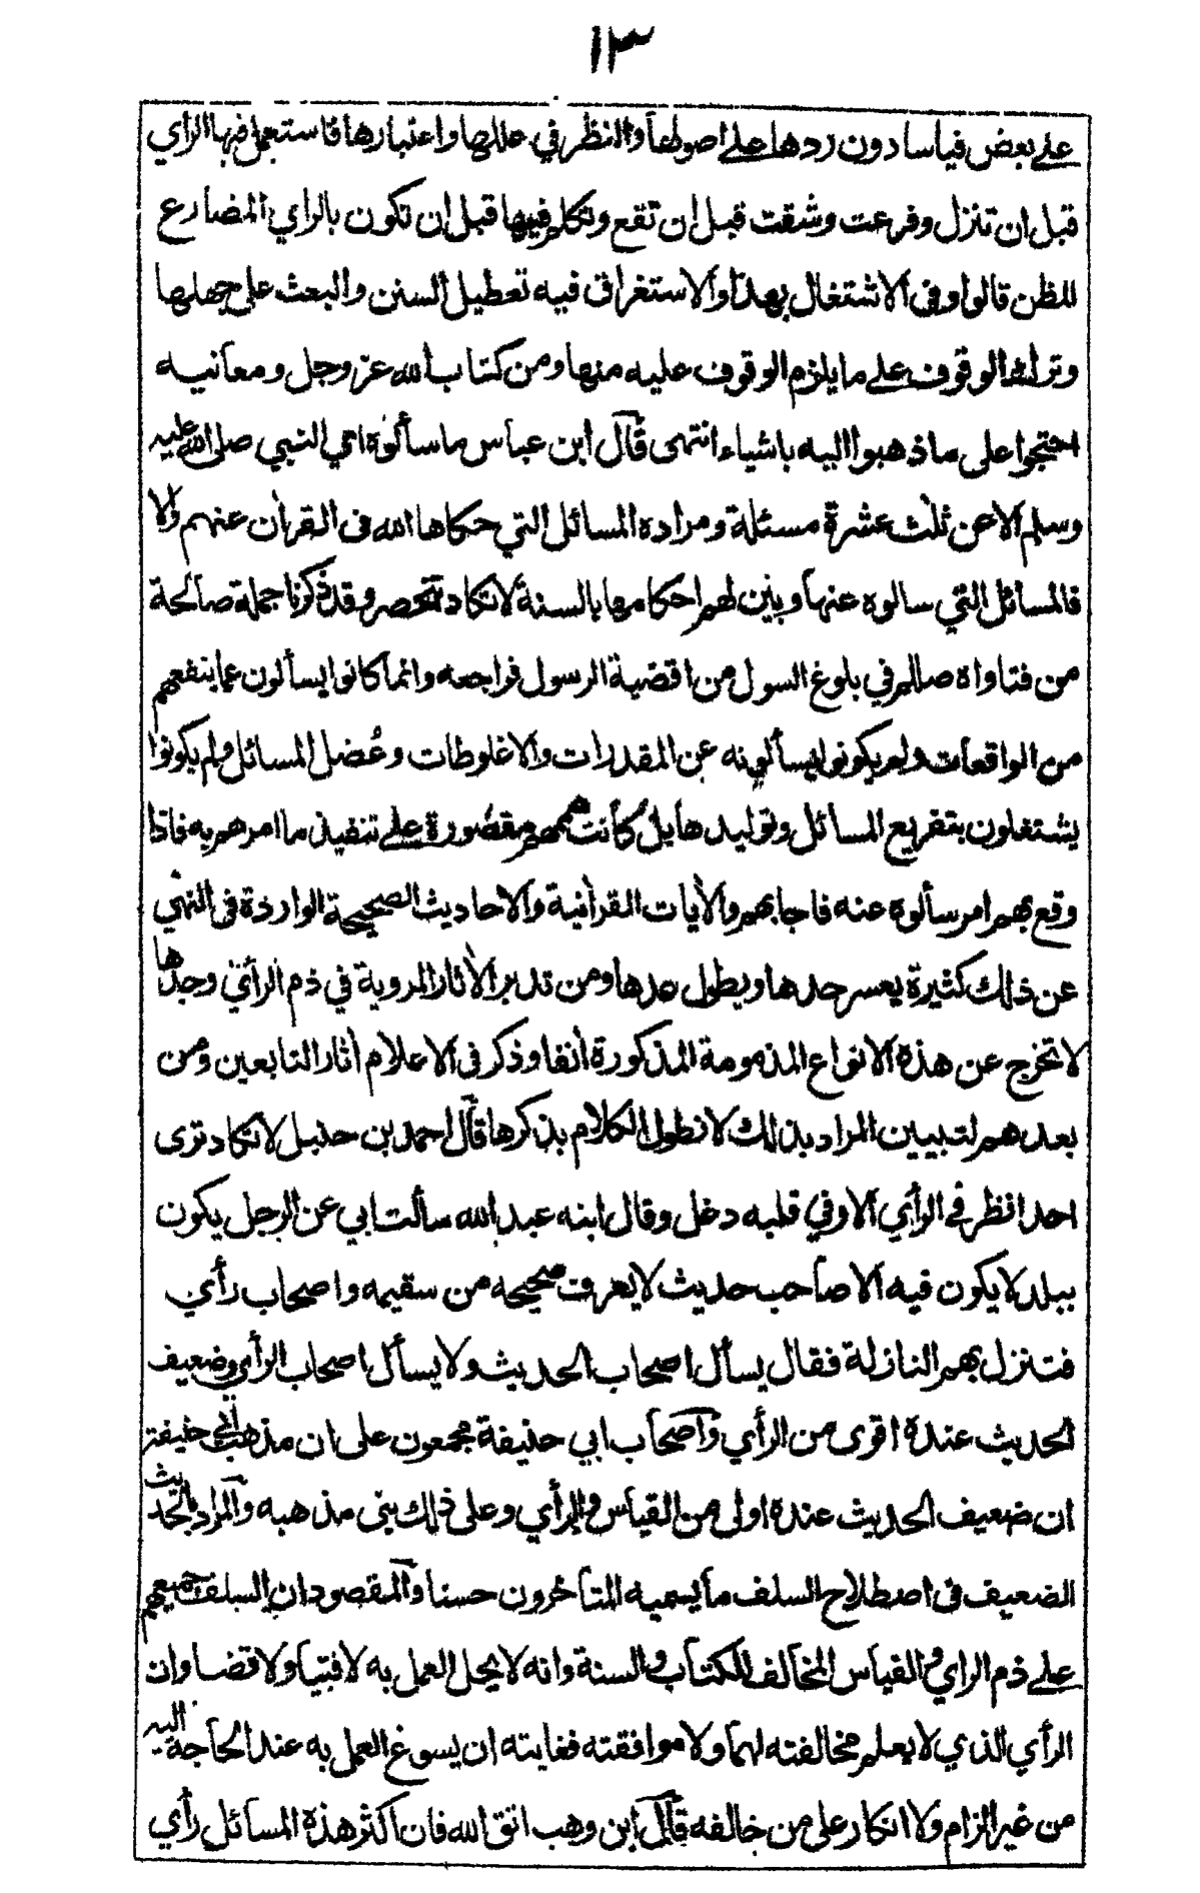 ١٣
على بعض قياسا دون ردها على اصولها والنظر في عللها واعتبارها فاستعمل فيها الراي
قبل ان تنزل وفرعت وشققت قبل ان تقع وتكلم فيها قبل ان تكون بالراي المضارع
للظن قالوا وفى الاشتغال بهذا والاستغراق فيه تعطيل السنن والبعث على جهلها
وترك الوقوف على ما يلزم الوقوف عليه منها ومن كتاب الله عز وجل ومعانيه
احتجوا على ما ذهبوا اليه باشياء انتهى قال ابن عباس ما سألوه اي النبي صلى الله عليه
وسلم الا عن ثلث عشرة مسئلة ومراده المسائل التي حكاها الله فى القرآن عنهم والا
فالمسائل التي سالوه عنها وبين لهم احكامها بالسنة لا تكاد تنحصر وقد ذكرنا جملة صالحة
من فتاواه صللم في بلوغ السول من اقضية الرسول فراجعه وانما كانوا يسألون عما ينفعهم
من الواقعات ولم يكونوا يسألونه عن المقدرات والاغلوطات وعُضل المسائل ولم يكونوا
يشتغلون بتفريع المسائل وتوليدها بل كانت هممهم مقصورة على تنفيذ ما امرهم به فاذا
وقع بهم امر سألوه عنه فاجابهم والآيات القرآنية والاحاديث الصحيحة الواردة فى النهي
عن ذلك كثيرة يعسر حدها ويطول عدها ومن تدبر الآثار المروية في ذم الرأي وجدها
لا تخرج عن هذه الانواع المذمومة المذكورة آنفا وذكر فى الاعلام آثار التابعين ومن
بعدهم لتبيين المراد بذلك لا نطول الكلام بذكرها قال احمد بن حنبل لا تكاد ترى
احدا نظر في الرأي الا وفي قلبه دخل وقال ابنه عبد الله سألت ابي عن الرجل يكون
ببلد لا يكون فيه الا صاحب حديث لا يعرف صحيحه من سقيمه واصحاب رأي
فتنزل بهم النازلة فقال يسأل اصحاب الحديث ولا يسأل اصحاب الرأي وضعيف
الحديث عنده اقوى من الرأي واصحاب ابي حنيفة مجمعون على ان مذهب ابي حنيفة
ان ضعيف الحديث عنده اولى من القياس والرأي وعلى ذلك بنى مذهبه والمراد بالحديث
الضعيف فى اصطلاح السلف ما يسميه المتأخرون حسنا والمقصود ان السلف جميعهم
على ذم الراي والقياس المخالف للكتاب والسنة وانه لا يحل العمل به لا فتيا ولا قضا وان
الرأي الذي لا يعلم مخالفته لهما ولا موافقته فغايته ان يسوغ العمل به عند الحاجة اليه
من غير الزام ولا انكار على من خالفه قال ابن وهب اتق الله فان اكثر هذه المسائل رأي